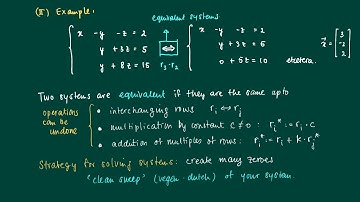 (II) Example:
equivalent systems
x - y - z = 2
y + 3z = 5
y + 8z = 15
r3 - r2
⇔
x - y - z = 2
y + 3z = 5
0 + 5z = 10
etcetera.
x = [3 -1 2]
Two systems are equivalent if they are the same upto
operations can be undone
• interchanging rows ri ↔ rj
• multiplication by constant c ≠ 0 : ri* := ri · c
• addition of multiples of rows : ri* := ri + k · rj*
Strategy for solving systems: create many zeroes
"clean sweep" (vegen - dutch) of your system.